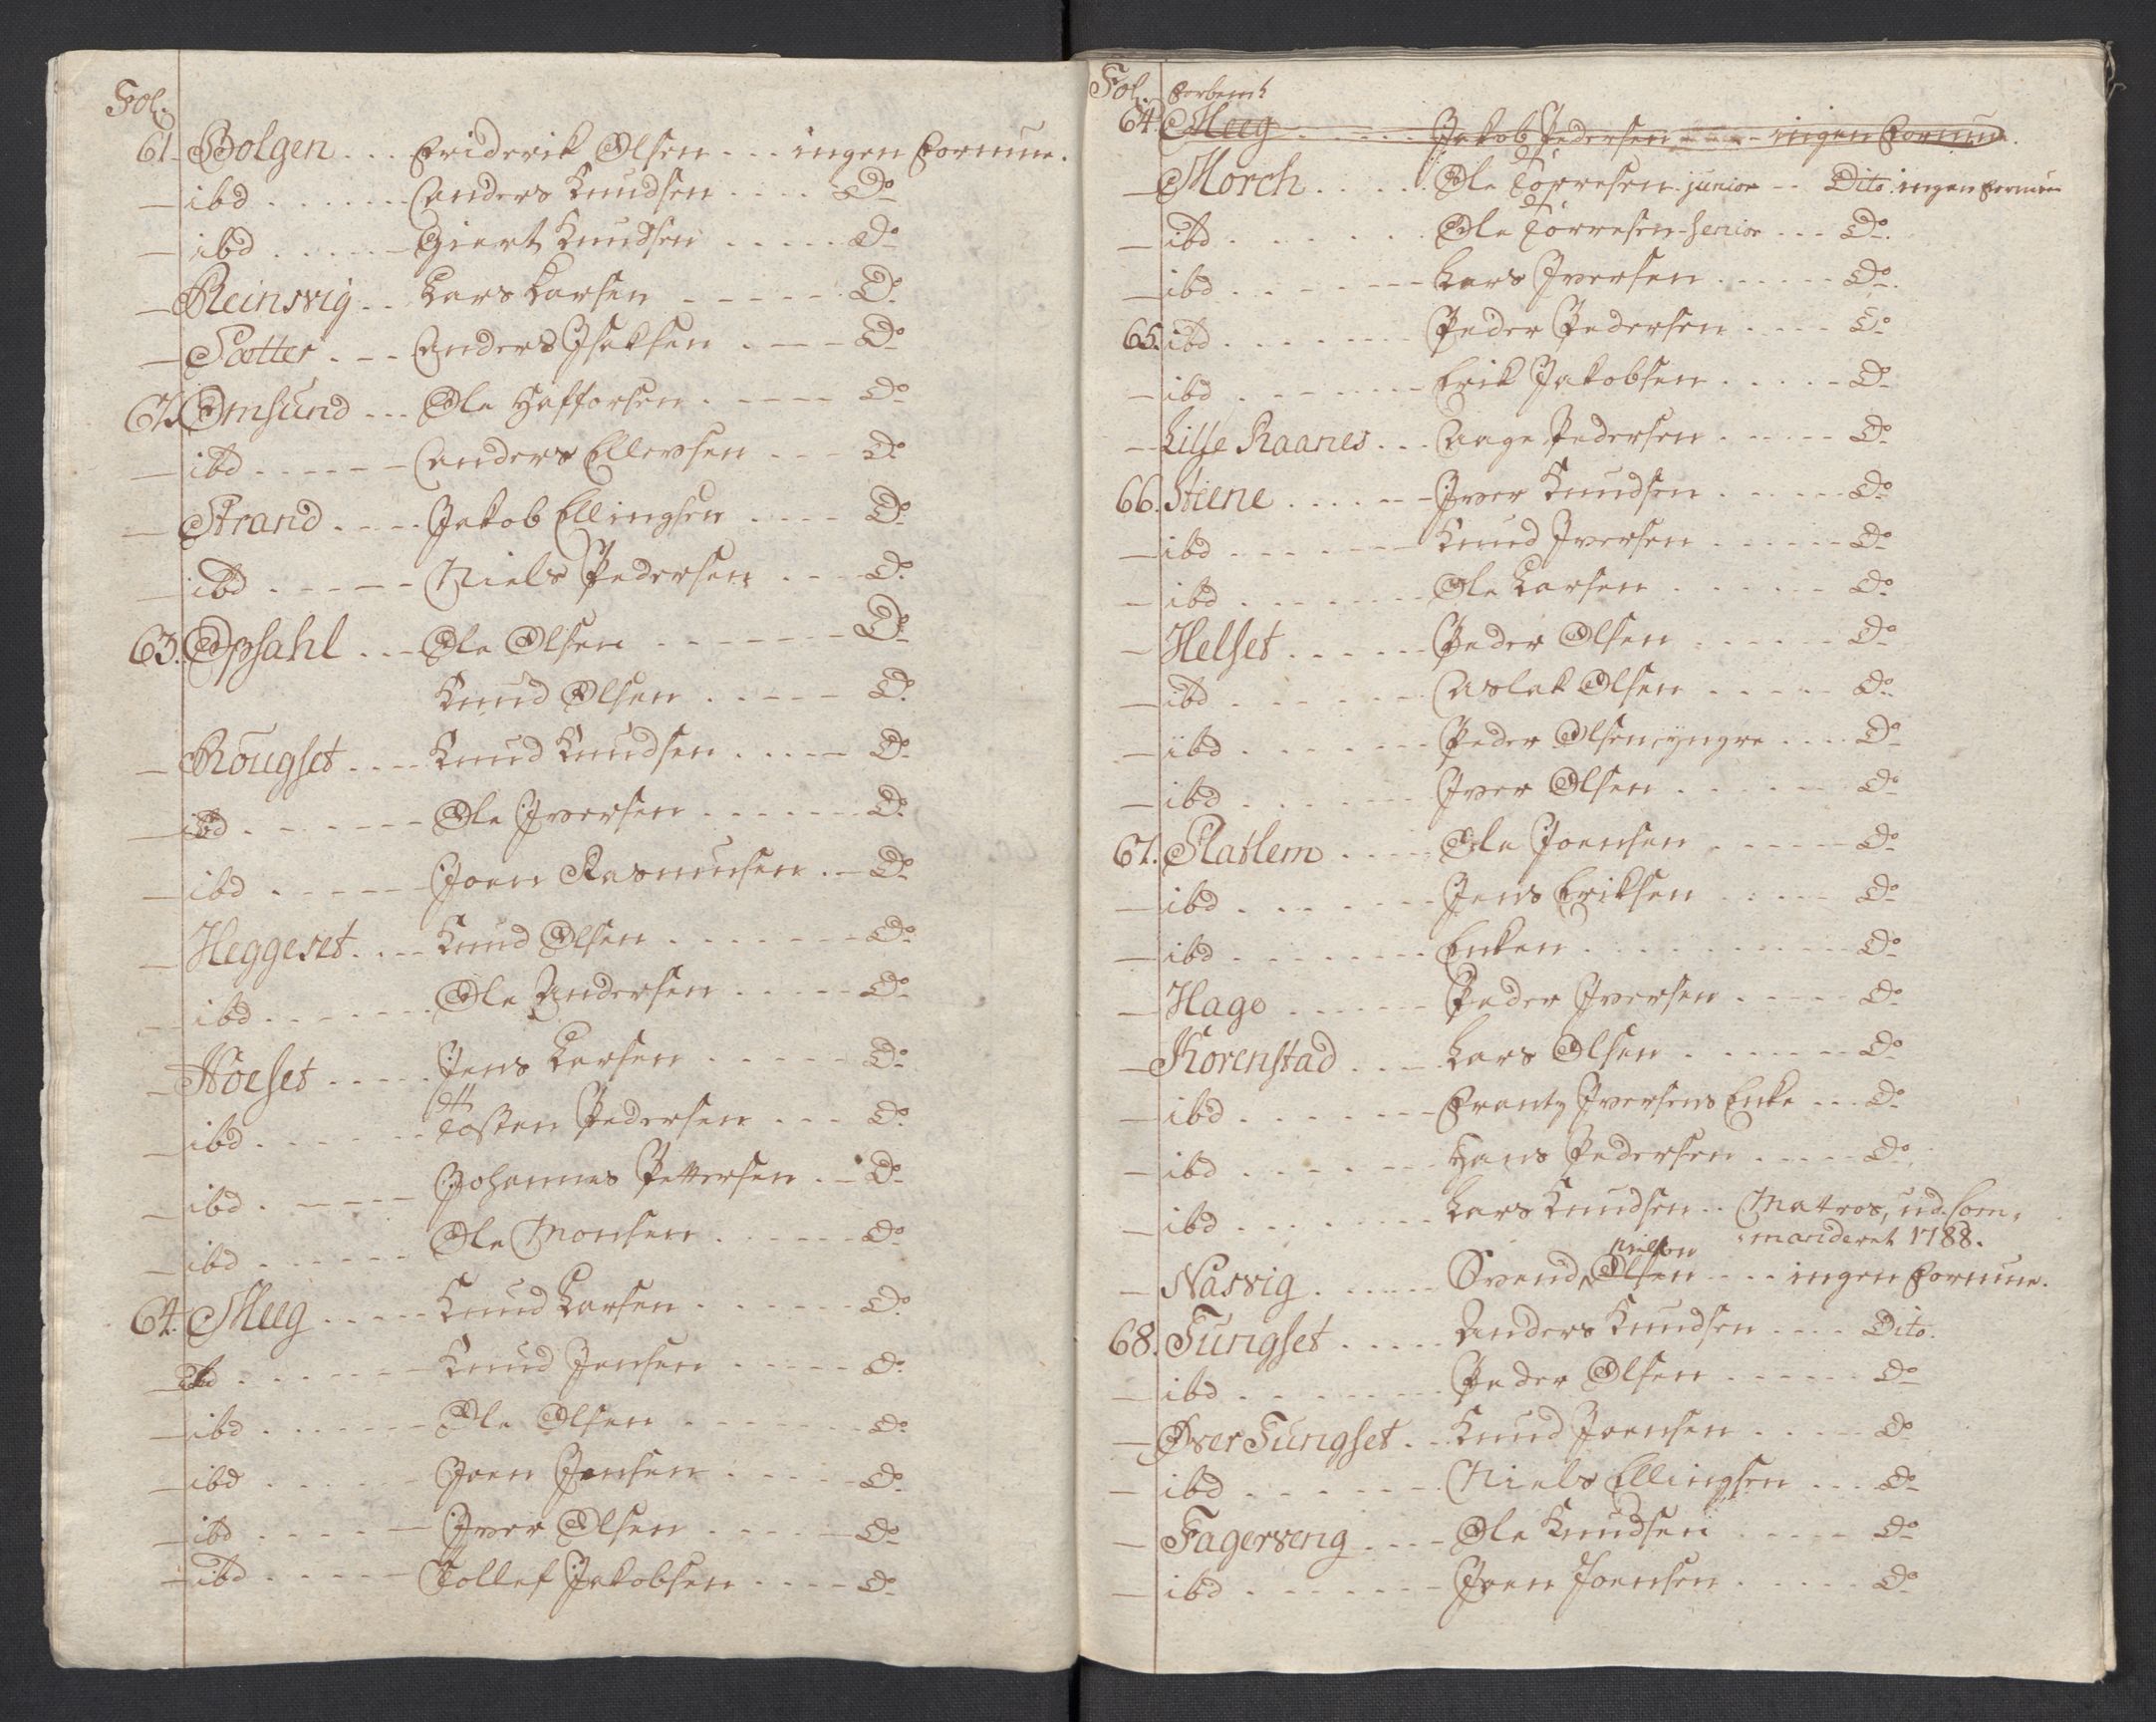 Fol.
61. Bolgen . . . Friderik Olsen . . . ingen Formue.
— ibd . . . . . . Anders Knudsen . . . . Do
— ibd . . . . . Giert Knudsen . . . . . Do
— Reinsvig . . Lars Larsen . . . . . . Do
— Sætter . . . Anders Isaksen . . . . Do
62. Omsund . . . Ole Hafforsen . . . . . Do
— ibd . . . . . . Anders Ellevsen . . . Do
— Strand . . . . Jakob Ellingsen . . . . Do
— ibd . . . . . Niels Pedersen . . . Do
63. Opsahl . . . Ole Olsen . . . . . . . Do
Knud Olsen . . . . . Do
— Rougset . . . . Knud Knudsen . . . . . Do
— ibd . . . . . . Ole Iversen . . . . . . . Do
— ibd . . . . . Joen Rasmusen . . Do
— Heggeset . . . . Knud Olsen . . . . . . . Do
— ibd . . . . . . . Ole Andersen . . . . . Do
— Höeset . . . . . Jens Larsen . . . . . . Do
— ibd . . . . . . Tosten Pedersen . . . Do
— ibd . . . . . Johannes Pettersen . . Do
— ibd . . . . . . Ole Monsen . . . . . . Do
64. Meeg . . . . . Knud Larsen . . . . . . Do
— ibd . . . . . . . Knud Jensen . . . . . Do
— ibd . . . . . . . Ole Olsen . . . . . . . Do
— ibd . . . . . . Joen Jensen . . . . . Do
— ibd . . . . . . Iver Olsen . . . . . . Do
— ibd . . . . . . Tollef Jakobsen . . . . Do
Fol.
64. Meeg . . . . Jakob Pedersen . . . . ingen Formue.
— Morch . . . . . Ole Törresen junior . . Dito ingen Formue
— ibd . . . . . . . Ole Törresen Senior . . . Do.
— ibd . . . . . . . Lars Iversen . . . . . . Do.
65. ibd . . . . . . . Peder Pedersen . . . . Do
— ibd . . . . . . . Erik Jakobsen . . . . . Do
— Lille Raanes . . . Aage Pedersen . . . . . Do
66. Stene . . . . . . Iver Knudsen . . . . . . Do
— ibd . . . . . . . Knud Iversen . . . . . . Do
— ibd . . . . . . . Ole Larsen . . . . . . Do
— Helset . . . . . . Peder Olsen . . . . . . Do
— ibd . . . . . . . Aslak Olsen . . . . . Do
— ibd . . . . . . . Peder Olsen, yngre . . . . Do
— ibd . . . . . . . Iver Olsen . . . . . . Do
67. Slatlem . . . . Ole Joensen . . . . . . Do
— ibd . . . . . . . Jens Eriksen . . . . . Do
— ibd . . . . . . . Enken . . . . . . . . . Do
— Hage . . . . . . Peder Iversen . . . . . Do
— Korenstad . . . . Lars Olsen . . . . . . . Do
— ibd . . . . . . . Frantz Iversens Enke . . . Do
— ibd . . . . . . . Hans Pedersen . . . . . Do
— ibd . . . . . . . Lars Knudsen . . Matros, ud Com,
manderet 1788.
Nielsen
— Nasvig . . . . . . Svend Olsen . . . . ingen Formue.
68. Fungset . . . . . Anders Knudsen . . . . Dito.
— ibd . . . . . . . Peder Olsen . . . . . . Do
— Över Fungset . . Knud Joensen . . . . . Do
— ibd . . . . . . . Niels Ellingsen . . . Do
— Fagerveng . . . . Ole Knudsen . . . . . Do
— ibd . . . . . . . Joen Joensen . . . . . Do